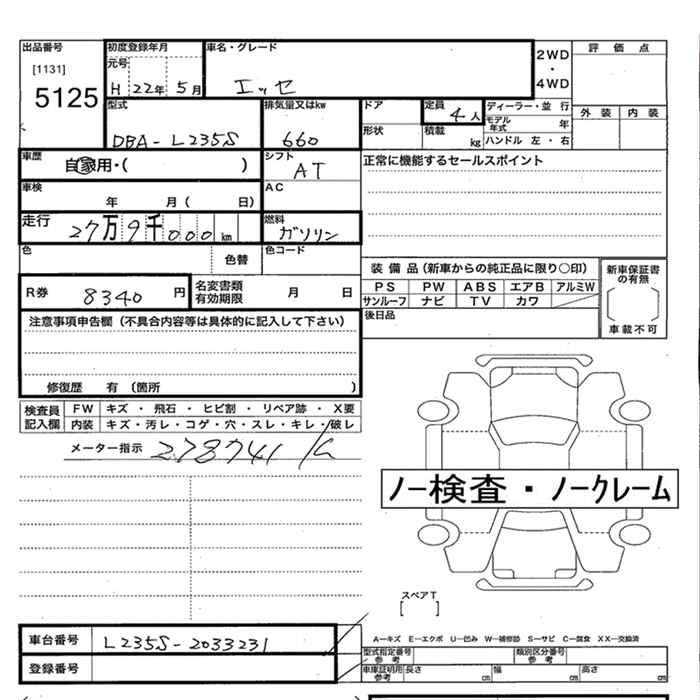 出品番号 [1131] 5125
初度登録年月 元号 H 22年 5月
車名・グレード エッセ
2WD ・ 4WD
評価点
外装 内装
型式 DBA-L235S
排気量又はkw 660
ドア 定員 4人
形状 積載 kg
ディーラー・並行
モデル年式 年
ハンドル 左・右
車歴 自家用・( )
シフト AT
正常に機能するセールスポイント
車検 年 月( 日)
AC
走行 27万9千000km
燃料 ガソリン
色 色替 色コード
装備品(新車からの純正品に限り○印)
PS PW ABS エアB アルミW
サンルーフ ナビ TV カワ
新車保証書の有無
[ ]
車載不可
R券 8340円
名変書類有効期限 月 日
後日品
注意事項申告欄(不具合内容等は具体的に記入して下さい)
修復歴 有(箇所 )
検査員記入欄 FW キズ・飛石・ヒビ割・リペア跡・X要
内装 キズ・汚レ・コゲ・穴・スレ・キレ・破レ
メーター指示 278741
ノー検査・ノークレーム
スペアT
[ ]
車台番号 L235S-2033231
A―キズ E―エクボ U―凹み W―補修跡 S―サビ C―腐食 XX―交換済
登録番号
型式指定番号 参考 類別区分番号 参考
車車証明用参考 長さ cm 幅 cm 高さ cm